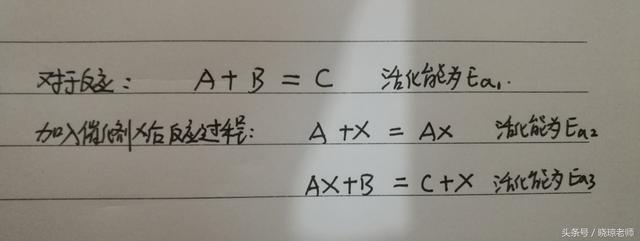 对于反应： A + B = C 活化能为Ea₁.
加入催化剂X后反应过程： A + X = AX 活化能为Ea₂
AX + B = C + X 活化能为Ea₃
头条号 / 晓琼老师